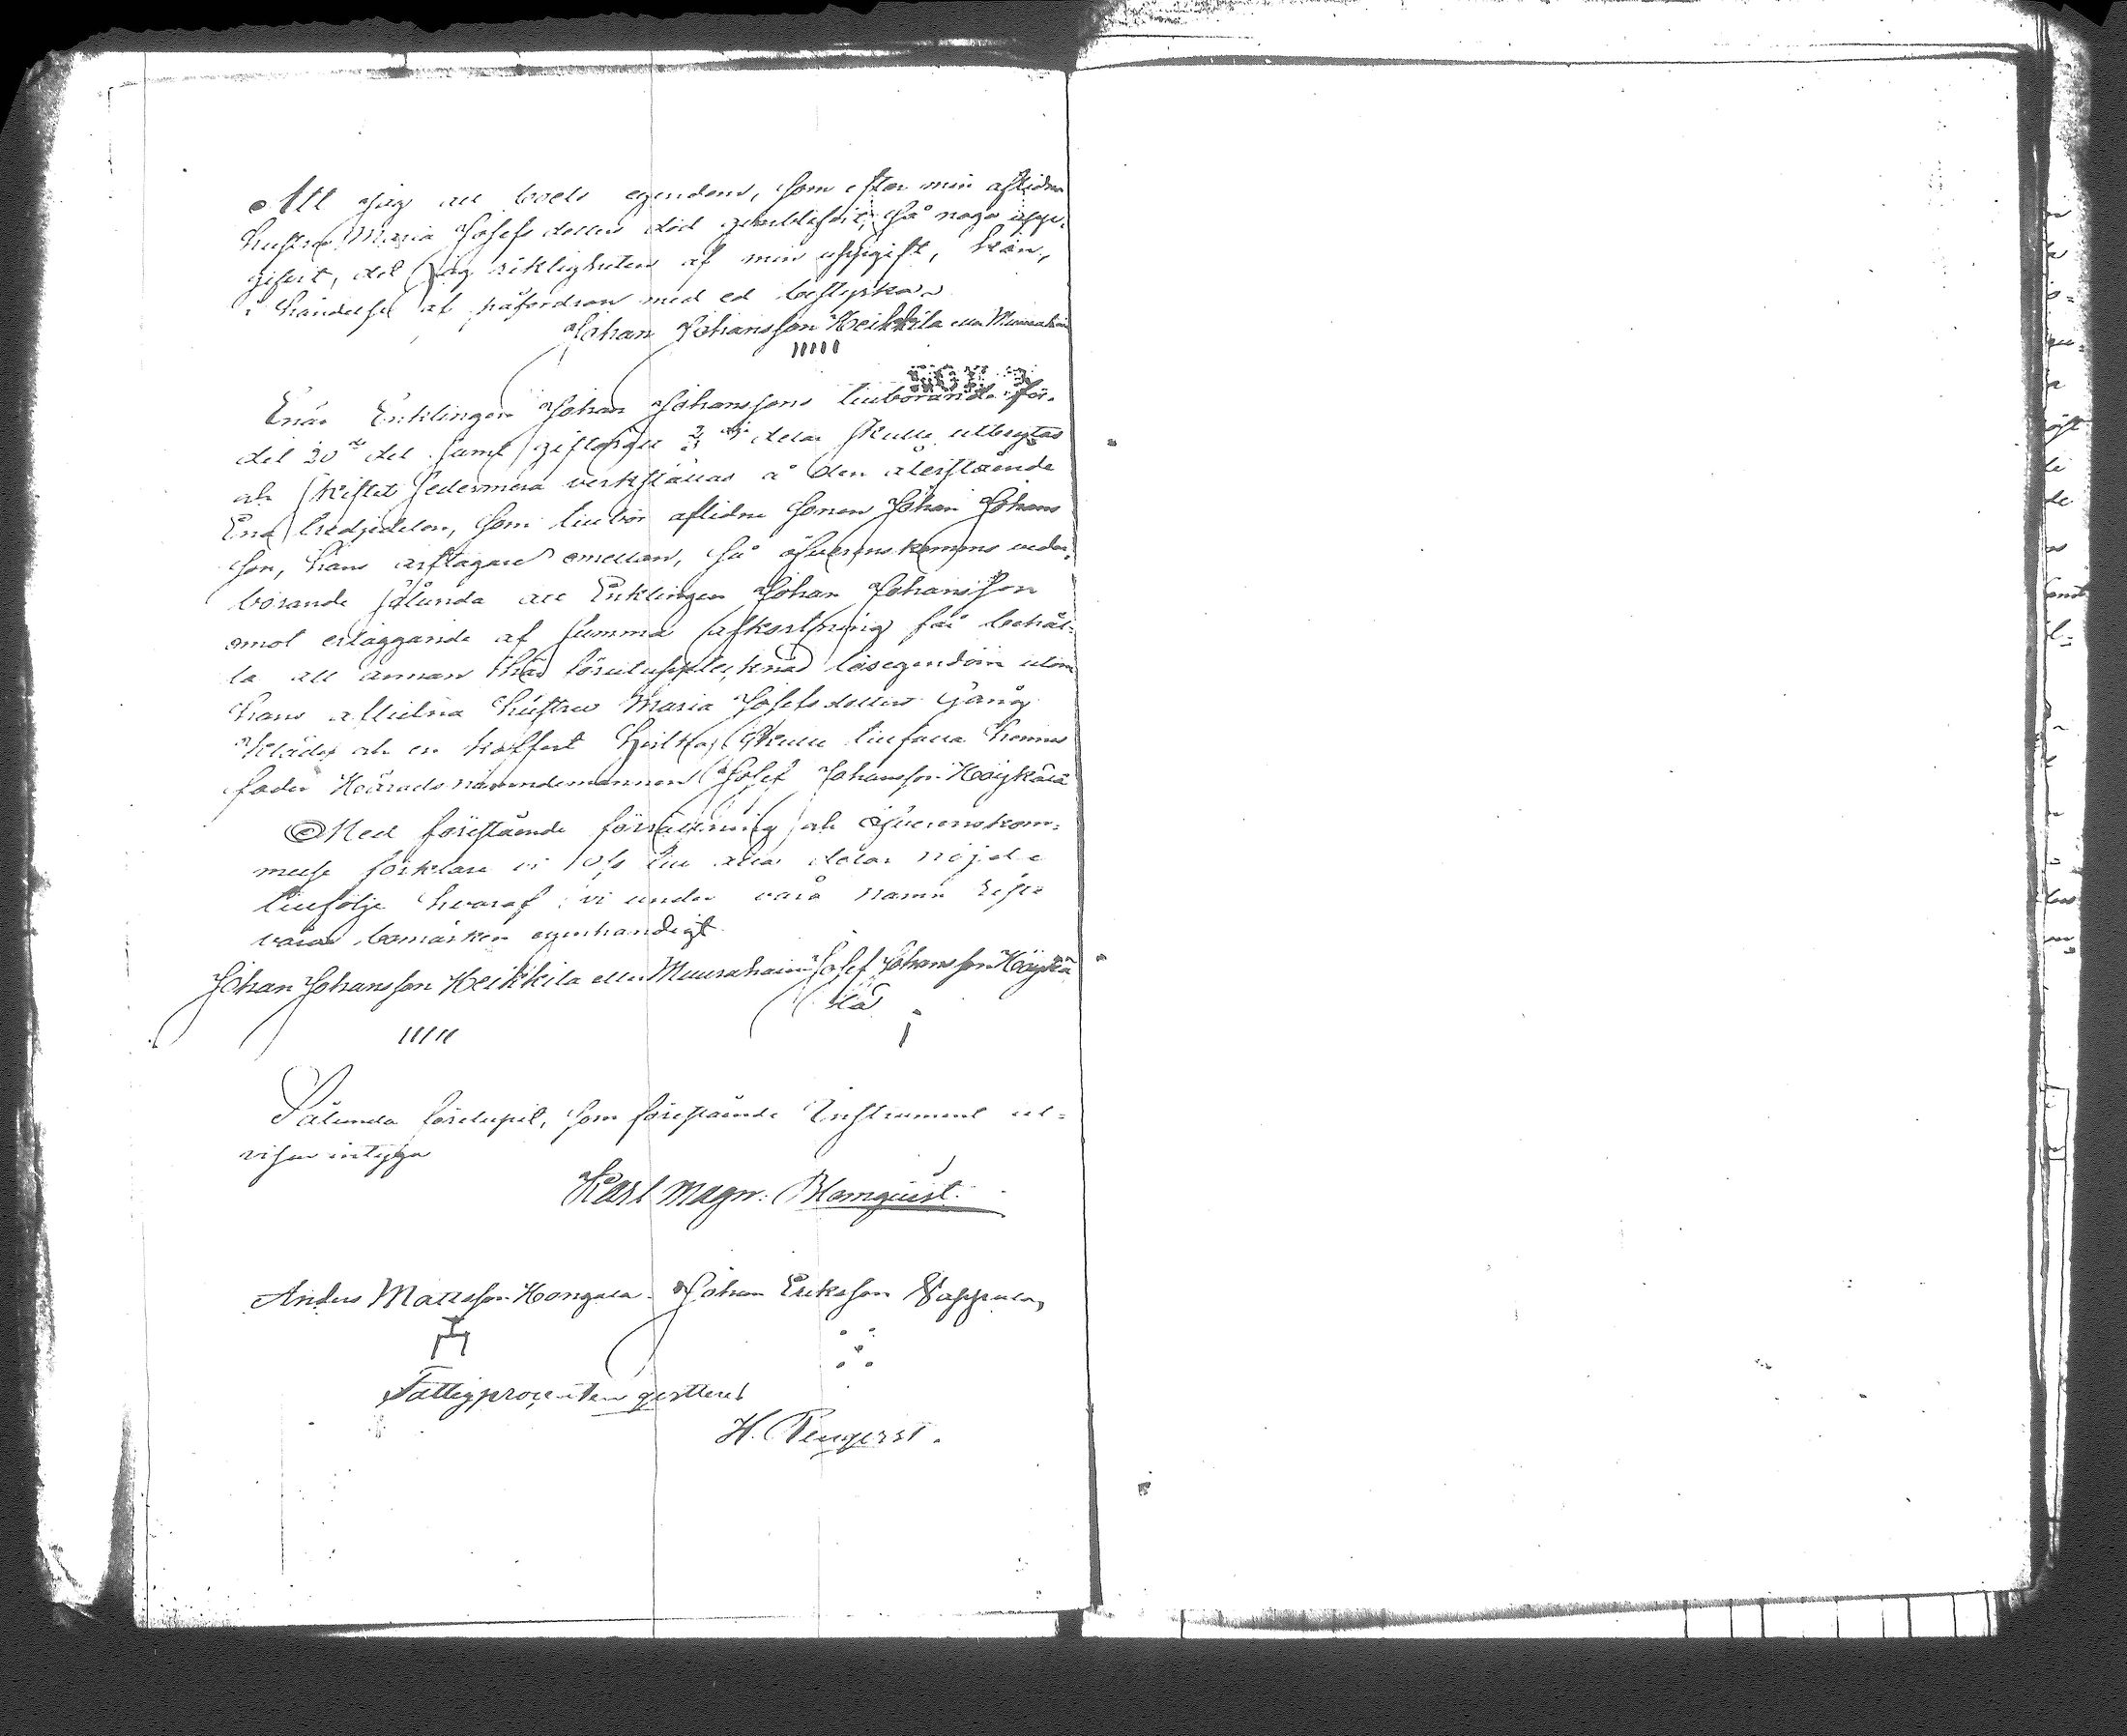 Att jag all boets egendom, som efter min aflidna
hustru Maria Josefsdotters död qvarblifvit, så noga upp-
gifvit, det jag riktigheten af min uppgift, kan,
i händelse af påfordran med ed bestyrka
Johan Johansson Heikkila eller Muurahain
Enär Enklingen Johan Johanssons tillhörande för-
del 20de del samt giftorätt 2/3 delar skulle utbrytas
och skiftet sedermera verkställas å den återstående
Ena tredjedelen, som tillhör aflidne sonen Johan Johans
son, hans arftagare emellan, så öfverenskommo veder-
börande sålunda att Enklingen Johan Johansson
emot erläggande af summa afkortning får behål-
la all annan här förut upptecknad lösegendom utom
hans aflidna hustrus Maria Josefsdotters Gång
kläder och en koffert hvilka skulle tillfalla hennes
fader Häradsnämndemannen Josef Johansson Höykälä
Med förestående förrättning och öfverenskom-
melse förklara vi oss till alla delar nöjde
tillfölje hvaraf vi under våra namn
våra bomärken egenhändigt
Johan Johansson Heikkila eller Muurahain Josef Johansson Höykä
lä
Sålunda förelupit, som förestående Instrument ut-
visar intyga
Karl Magn: Blomquist.
Anders Mattsson Hongala Johan Eriksson Vappula
Fattigprocenten qvitteras
H.